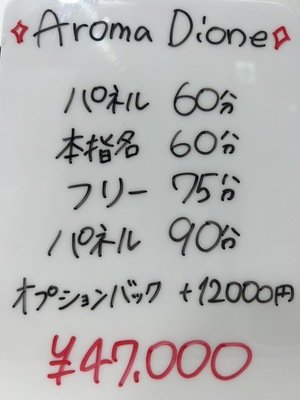 Aroma Dione
パネル 60分
本指名 60分
フリー 75分
パネル 90分
オプションバック +12000円
¥47,000